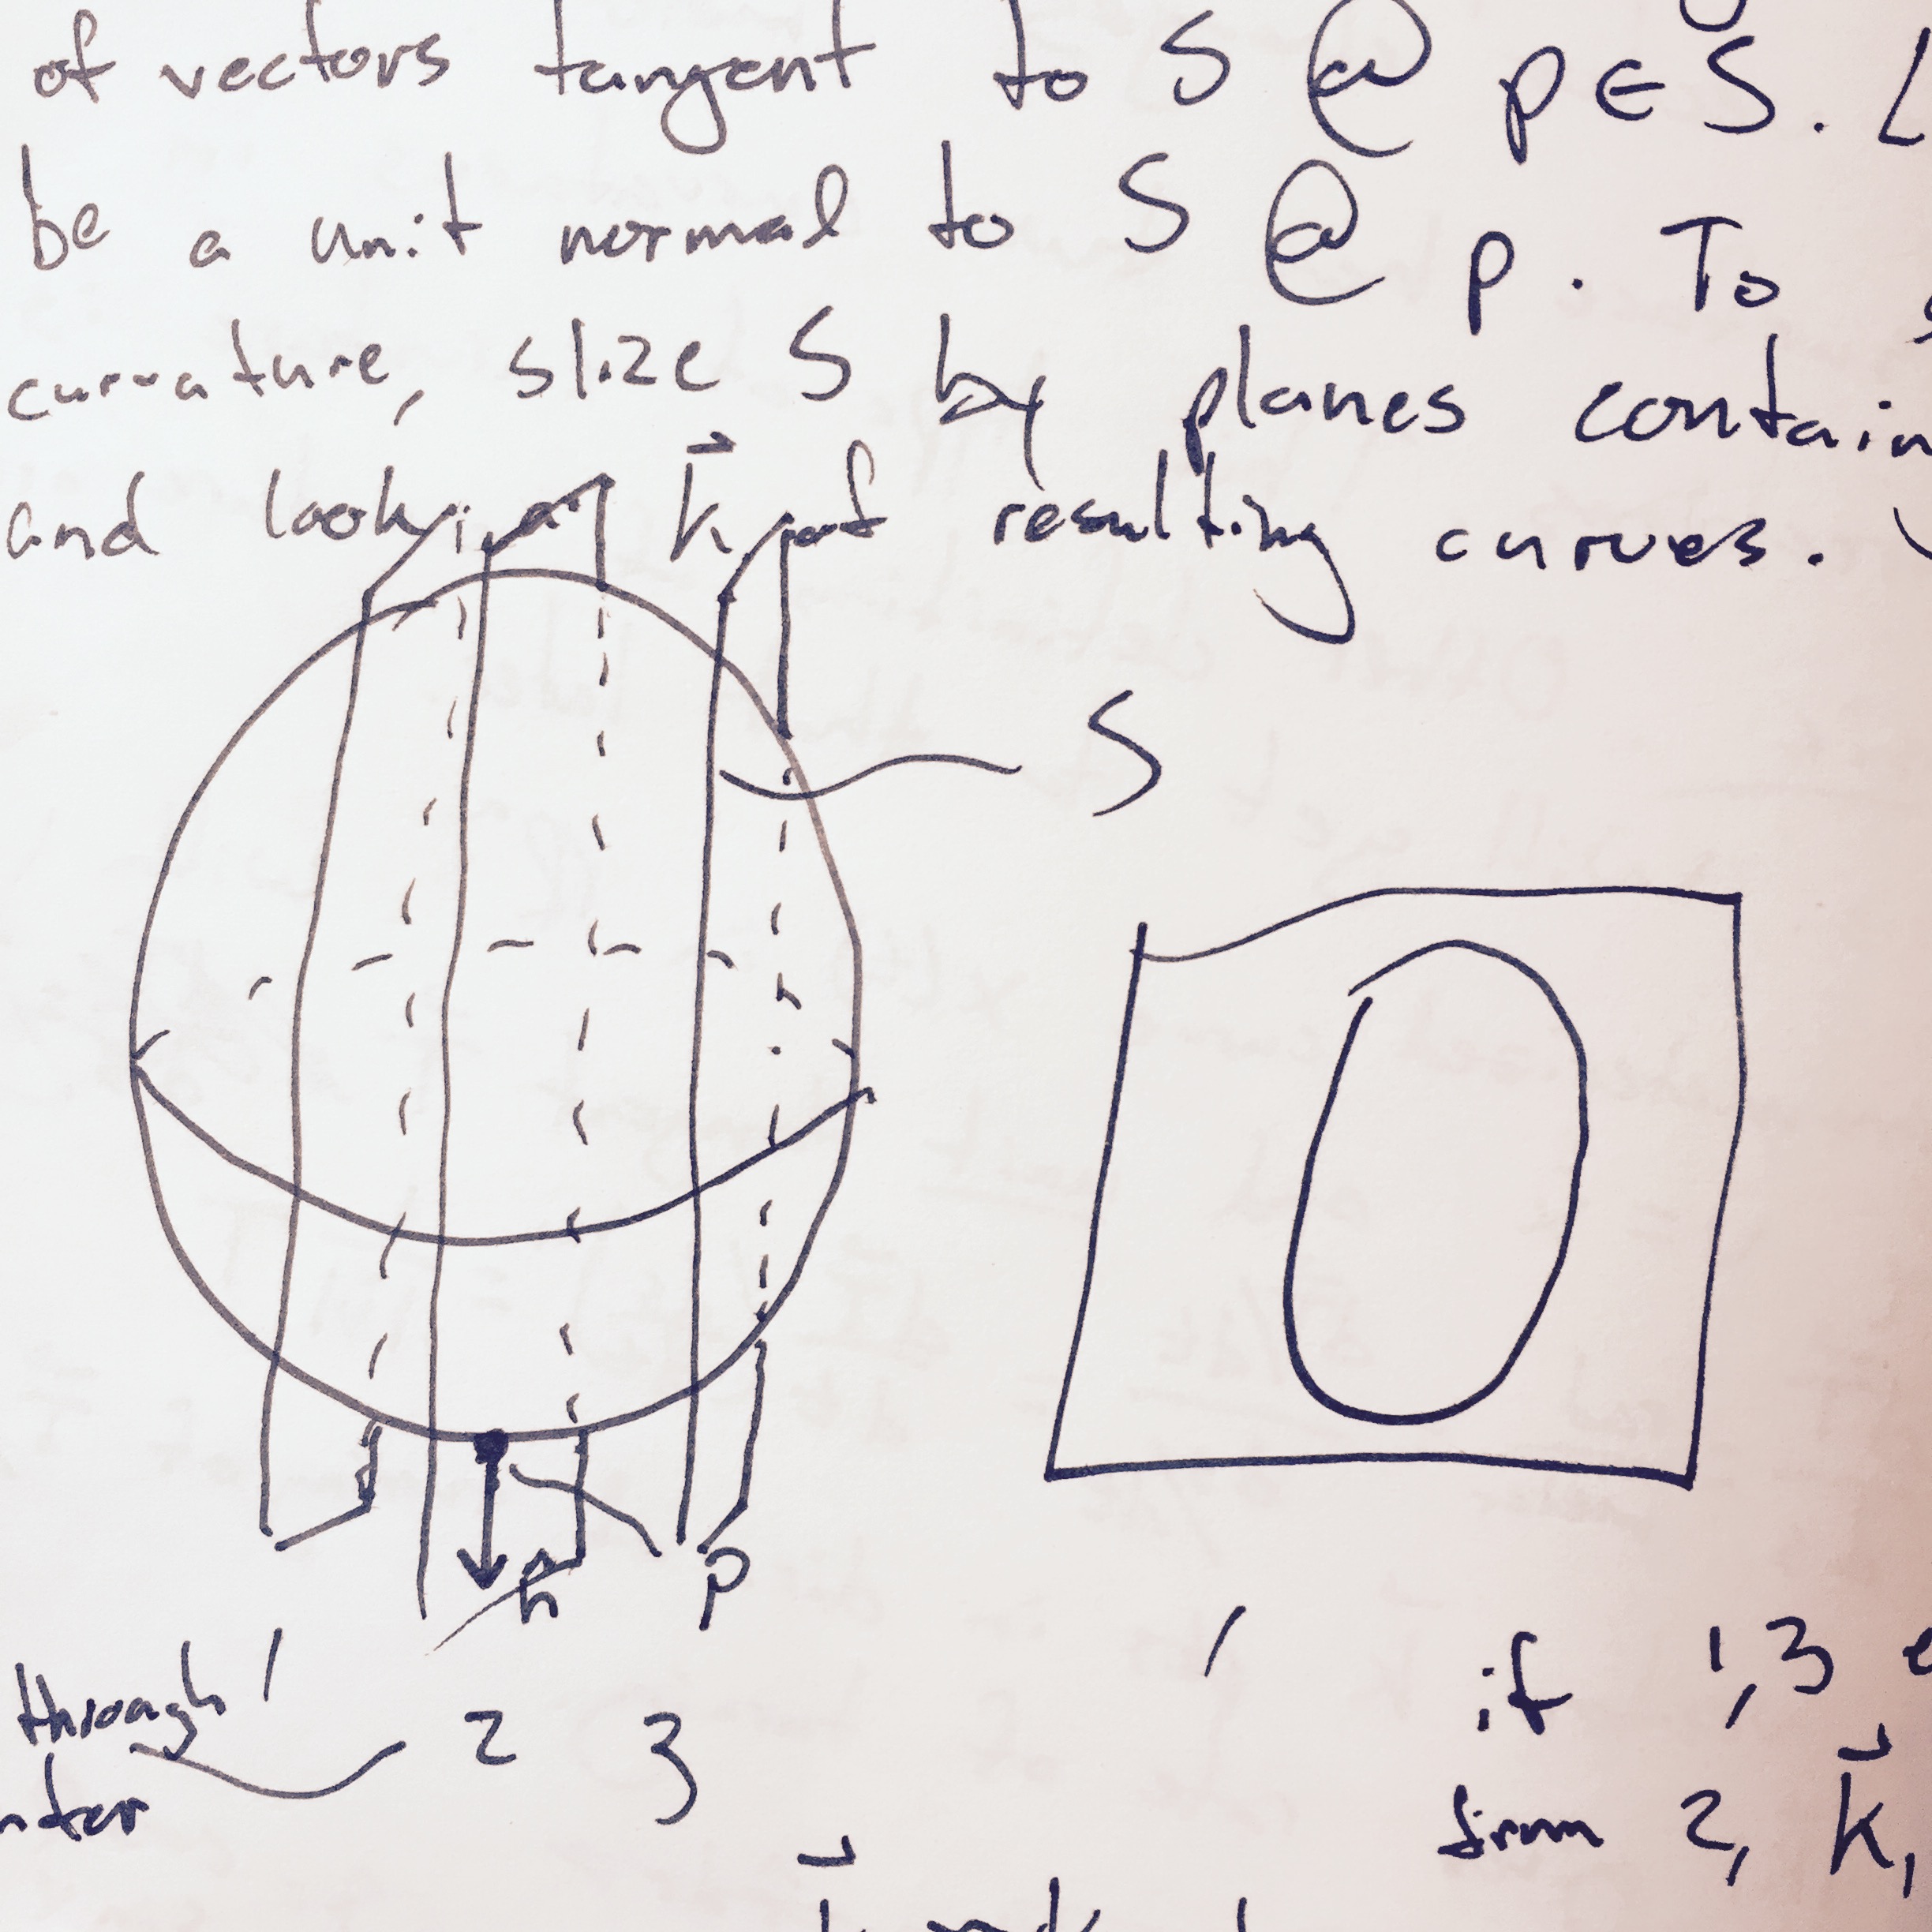 of vectors tangent to S @ p ∈ S.
be a unit normal to S @ p. To
curvature, slize S by planes contain
and look at k⃗ of resulting curves.
S
n̂ p
through 1
2 3
1
if 1,3
from 2, k⃗,